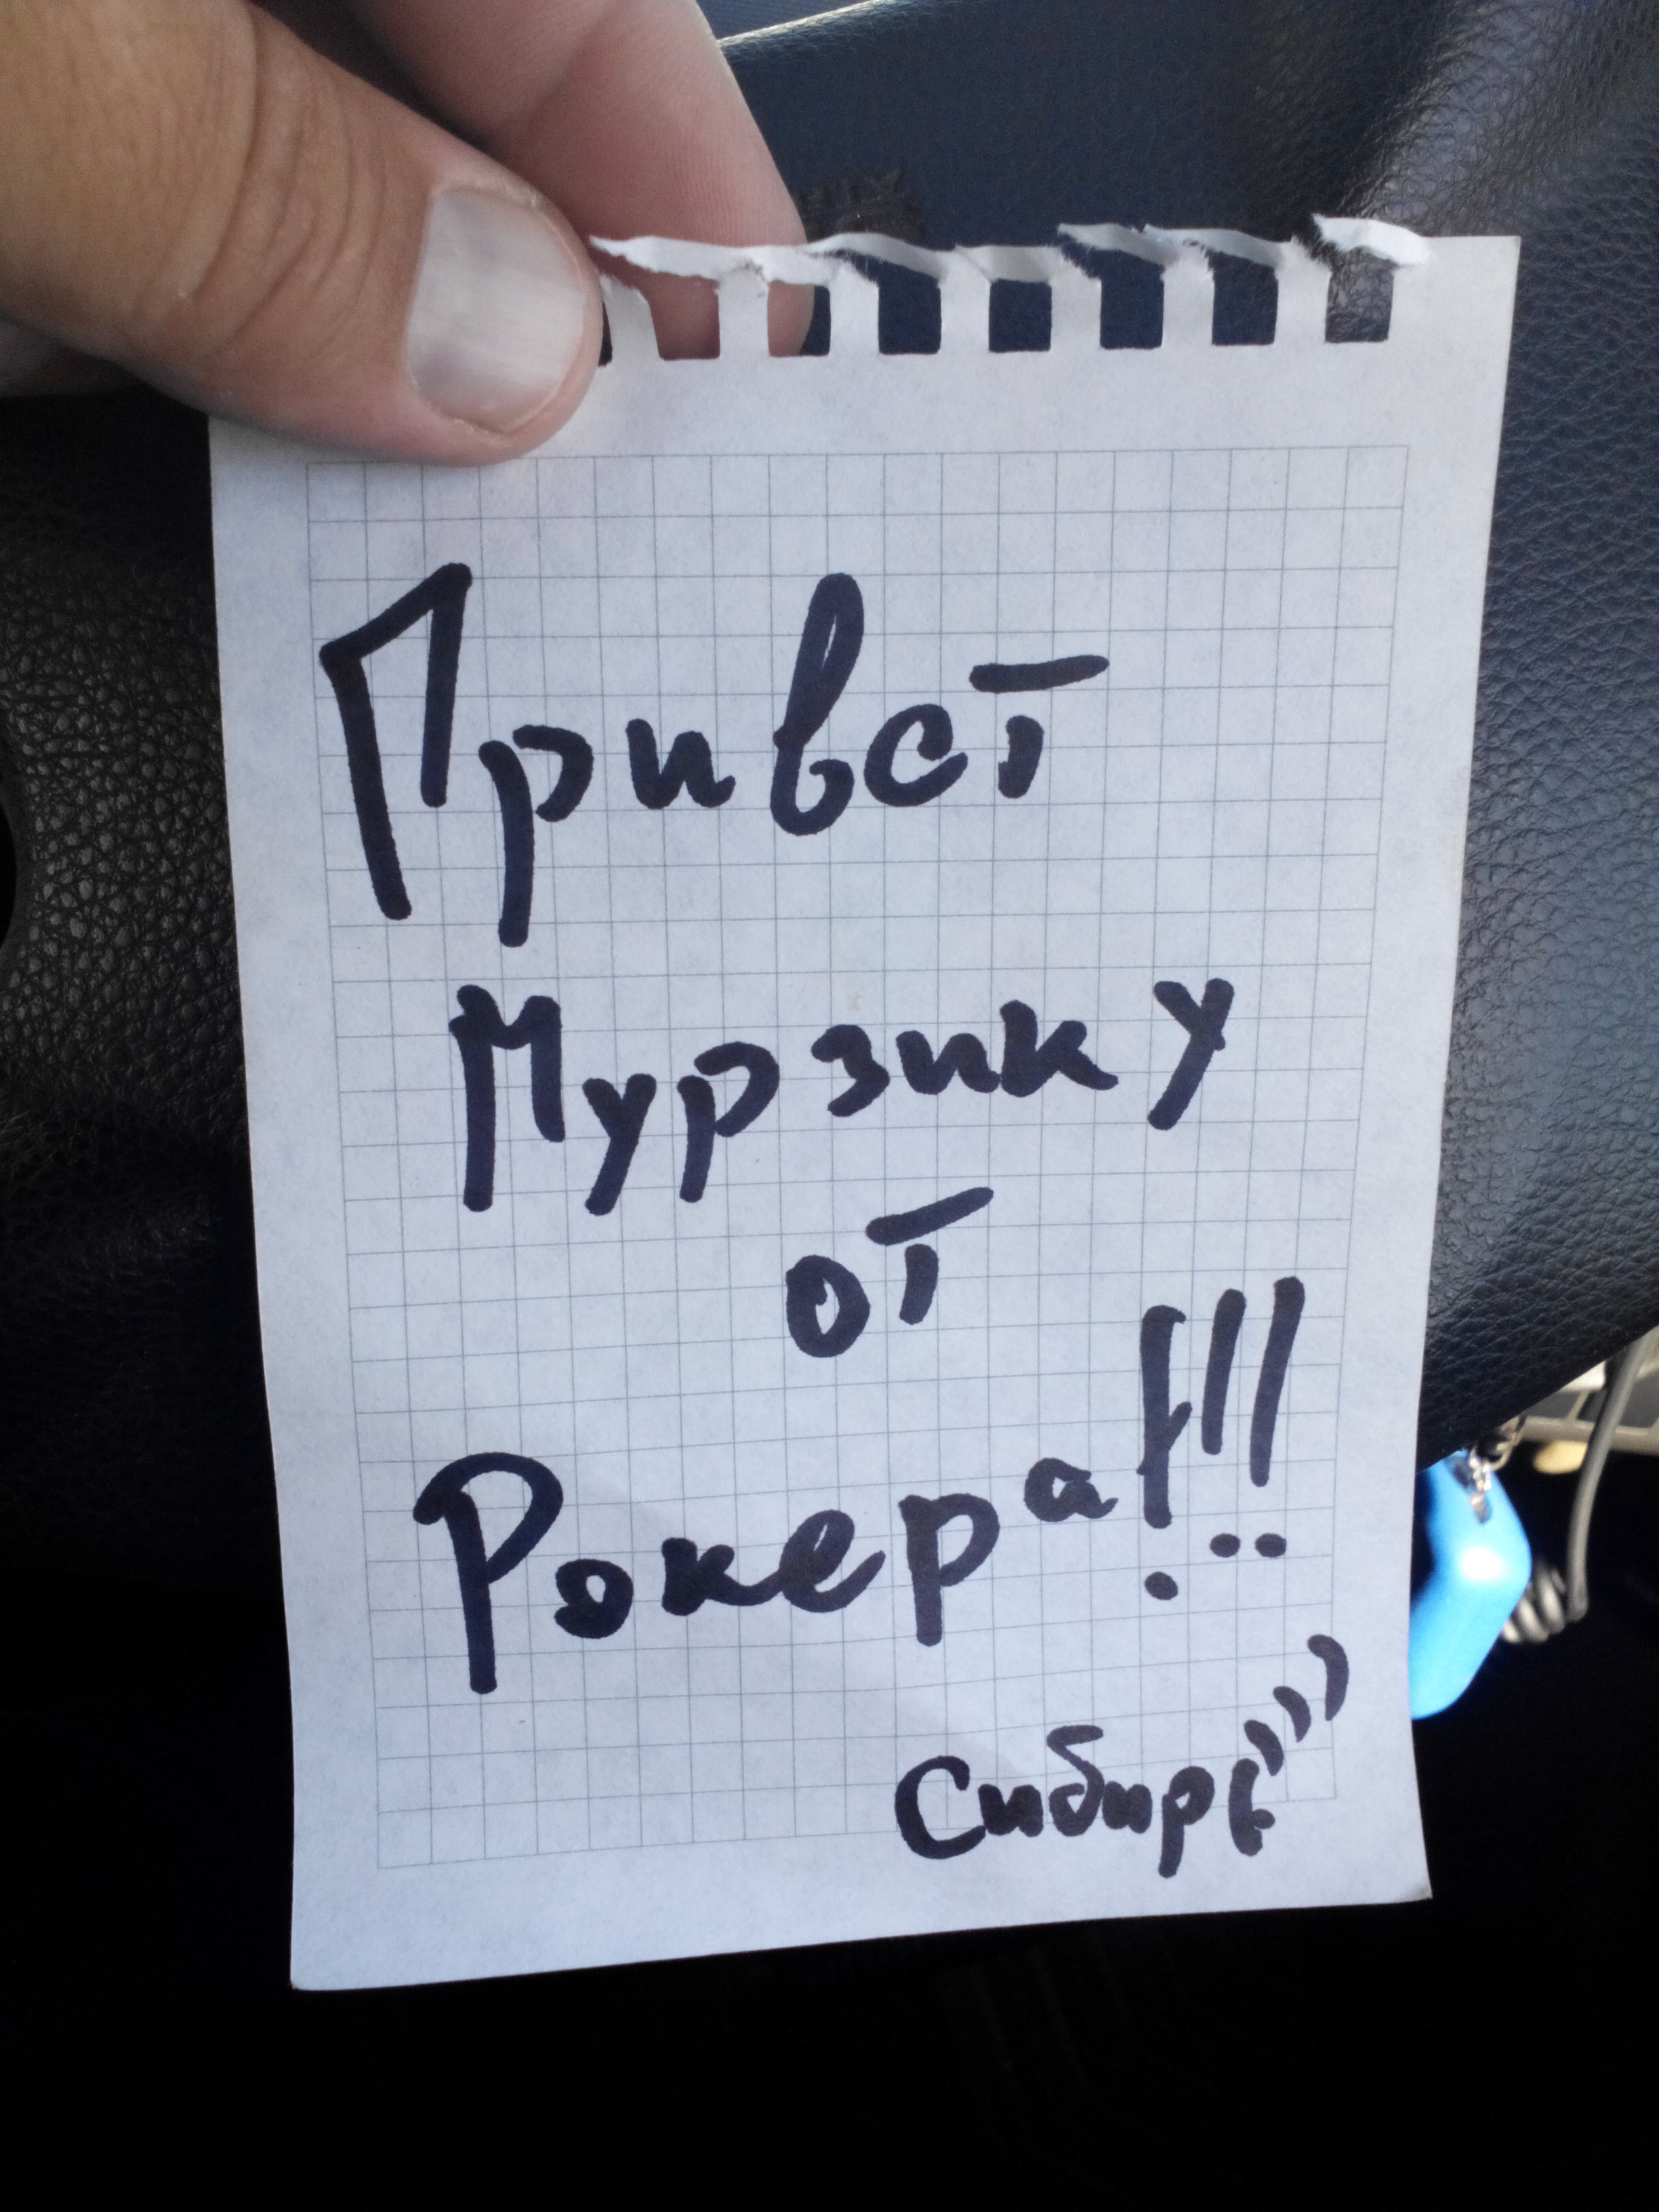 Привет
Мурзику
от
Рокера!!!
Сибирь